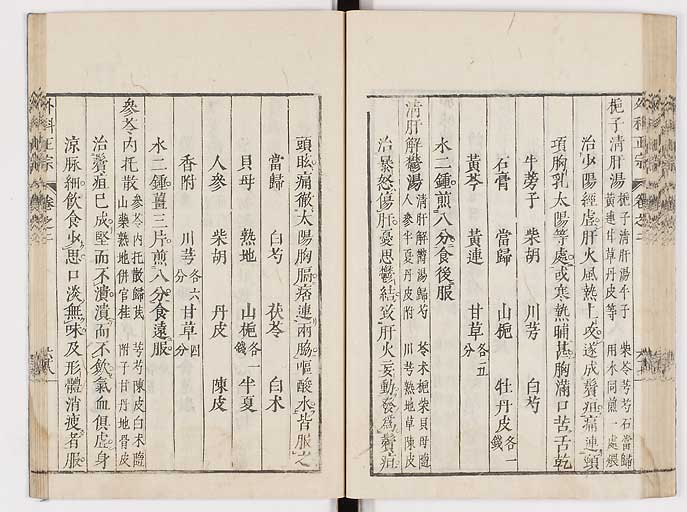 外科正宗 卷之二
梔子清肝湯 梔子清肝湯牛子 柴芩芎芍石當歸
黃連甘草丹皮等 用水同煎一處煨
治少陽經虛肝火風熱上攻遂成鬢疽痛連頸
項胸乳太陽等處或寒熱晡甚胸滿口苦舌乾
牛蒡子 柴胡 川芎 白芍
石膏 當歸 山梔 牡丹皮各一錢
黃芩 黃連 甘草各五分
水二鍾煎八分食後服
清肝解鬱湯 清肝解鬱湯歸芍 苓朮梔柴貝母隨
人參半夏丹皮附 川芎熟地草陳皮
治暴怒傷肝憂思鬱結致肝火妄動發為鬢疽
頭眩痛徹太陽胸膈痞連兩脇嘔酸水皆服之
當歸 白芍 茯苓 白朮
貝母 熟地 山梔各一錢 半夏
人參 柴胡 丹皮 陳皮
香附 川芎各六分 甘草四分
水二鍾薑三片煎八分食遠服
參苓內托散 參苓內托散歸芪 芎芍陳皮白朮隨
山藥熟地併官桂 附子甘丹地骨皮
治鬢疽已成堅而不潰潰而不歛氣血俱虛身
涼脉細飲食少思口淡無味及形體消瘦者服
外科正宗 卷之二